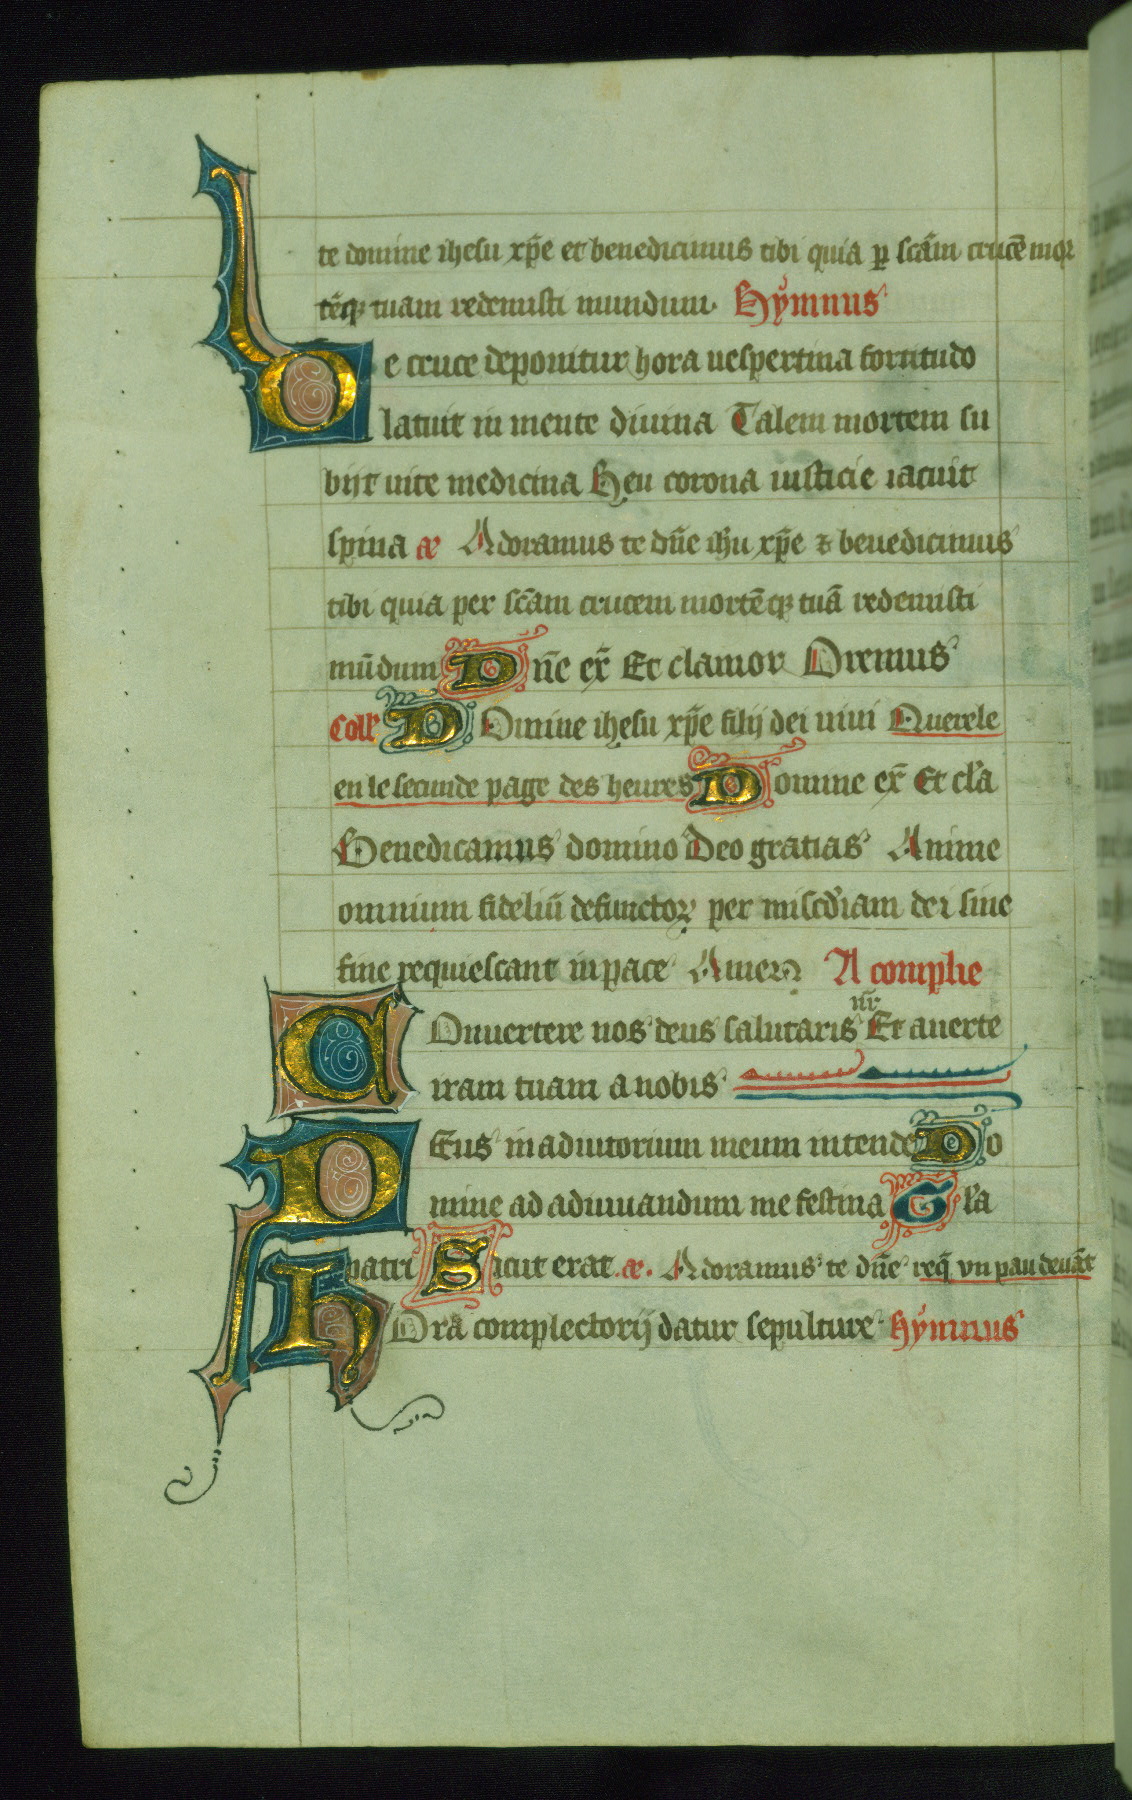 te domine ihesu xp̄e et benedicimus tibi quia ꝑ scām crucē moꝛ
tēqꝫ tuam redemisti mundum Hymnus
De cruce deponitur hora uespertina fortitudo
latuit in mente diuina Talem mortem su
biit uite medicina Heu corona iusticie iacuit
spina æ Adoramus te dn̄e ihu xp̄e ⁊ benedicimus
tibi quia per scām crucem mortēqꝫ tuā redemisti
mūdum Dn̄e ex̄ Et clamor Oremus
Coll' DOmine ihesu xp̄e filij dei uiui Querele
en le secunde page des heures Domine ex̄ Et cl'a
Benedicamus domino Deo gratias Anime
omnium fideliū defunctoꝝ per miscd'iam dei sine
fine requiescant in pace Amen A complie
COnuertere nos deus salutaris nr̄ Et auerte
iram tuam a nobis
DEus in adiutorium meum intende Do
mine ad adiuuandum me festina Gl'a
patri Sicut erat .æ. Adoramus te dn̄e req̄ vn pau deuāt
HOra complectorij datur sepulture Hymnus